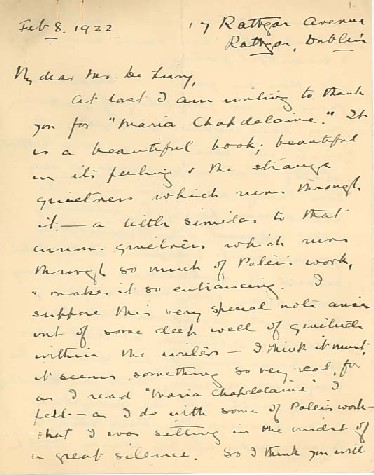 Feb 8. 1922
17 Rathgar Avenue
Rathgar, Dublin
My dear Mrs. De Lury,
At last I am writing to thank
you for "Maria Chapdelaine." It
is a beautiful book; beautiful
in its feeling & the strange
quietness which runs through
it — a little similar to that
inner quietness which runs
through so much of Æ's work,
& makes it so entrancing. I
suppose this very special note arises
out of some deep well of quietude
within the writer — I think it must,
it seems something so very real, for
as I read "Maria Chapdelaine" I
felt — as I do with some of work —
that I was sitting in the midst of
a great silence. So I think you will